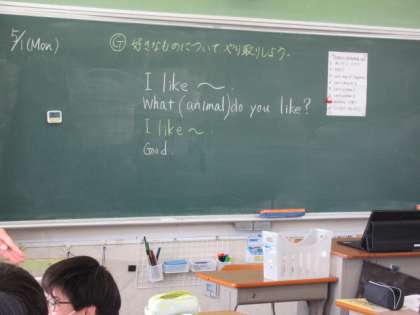 5/1(Mon)
Ⓖ 好きなものについて やり取りしよう。
I like 〜.
What (animal) do you like?
I like 〜.
Good.